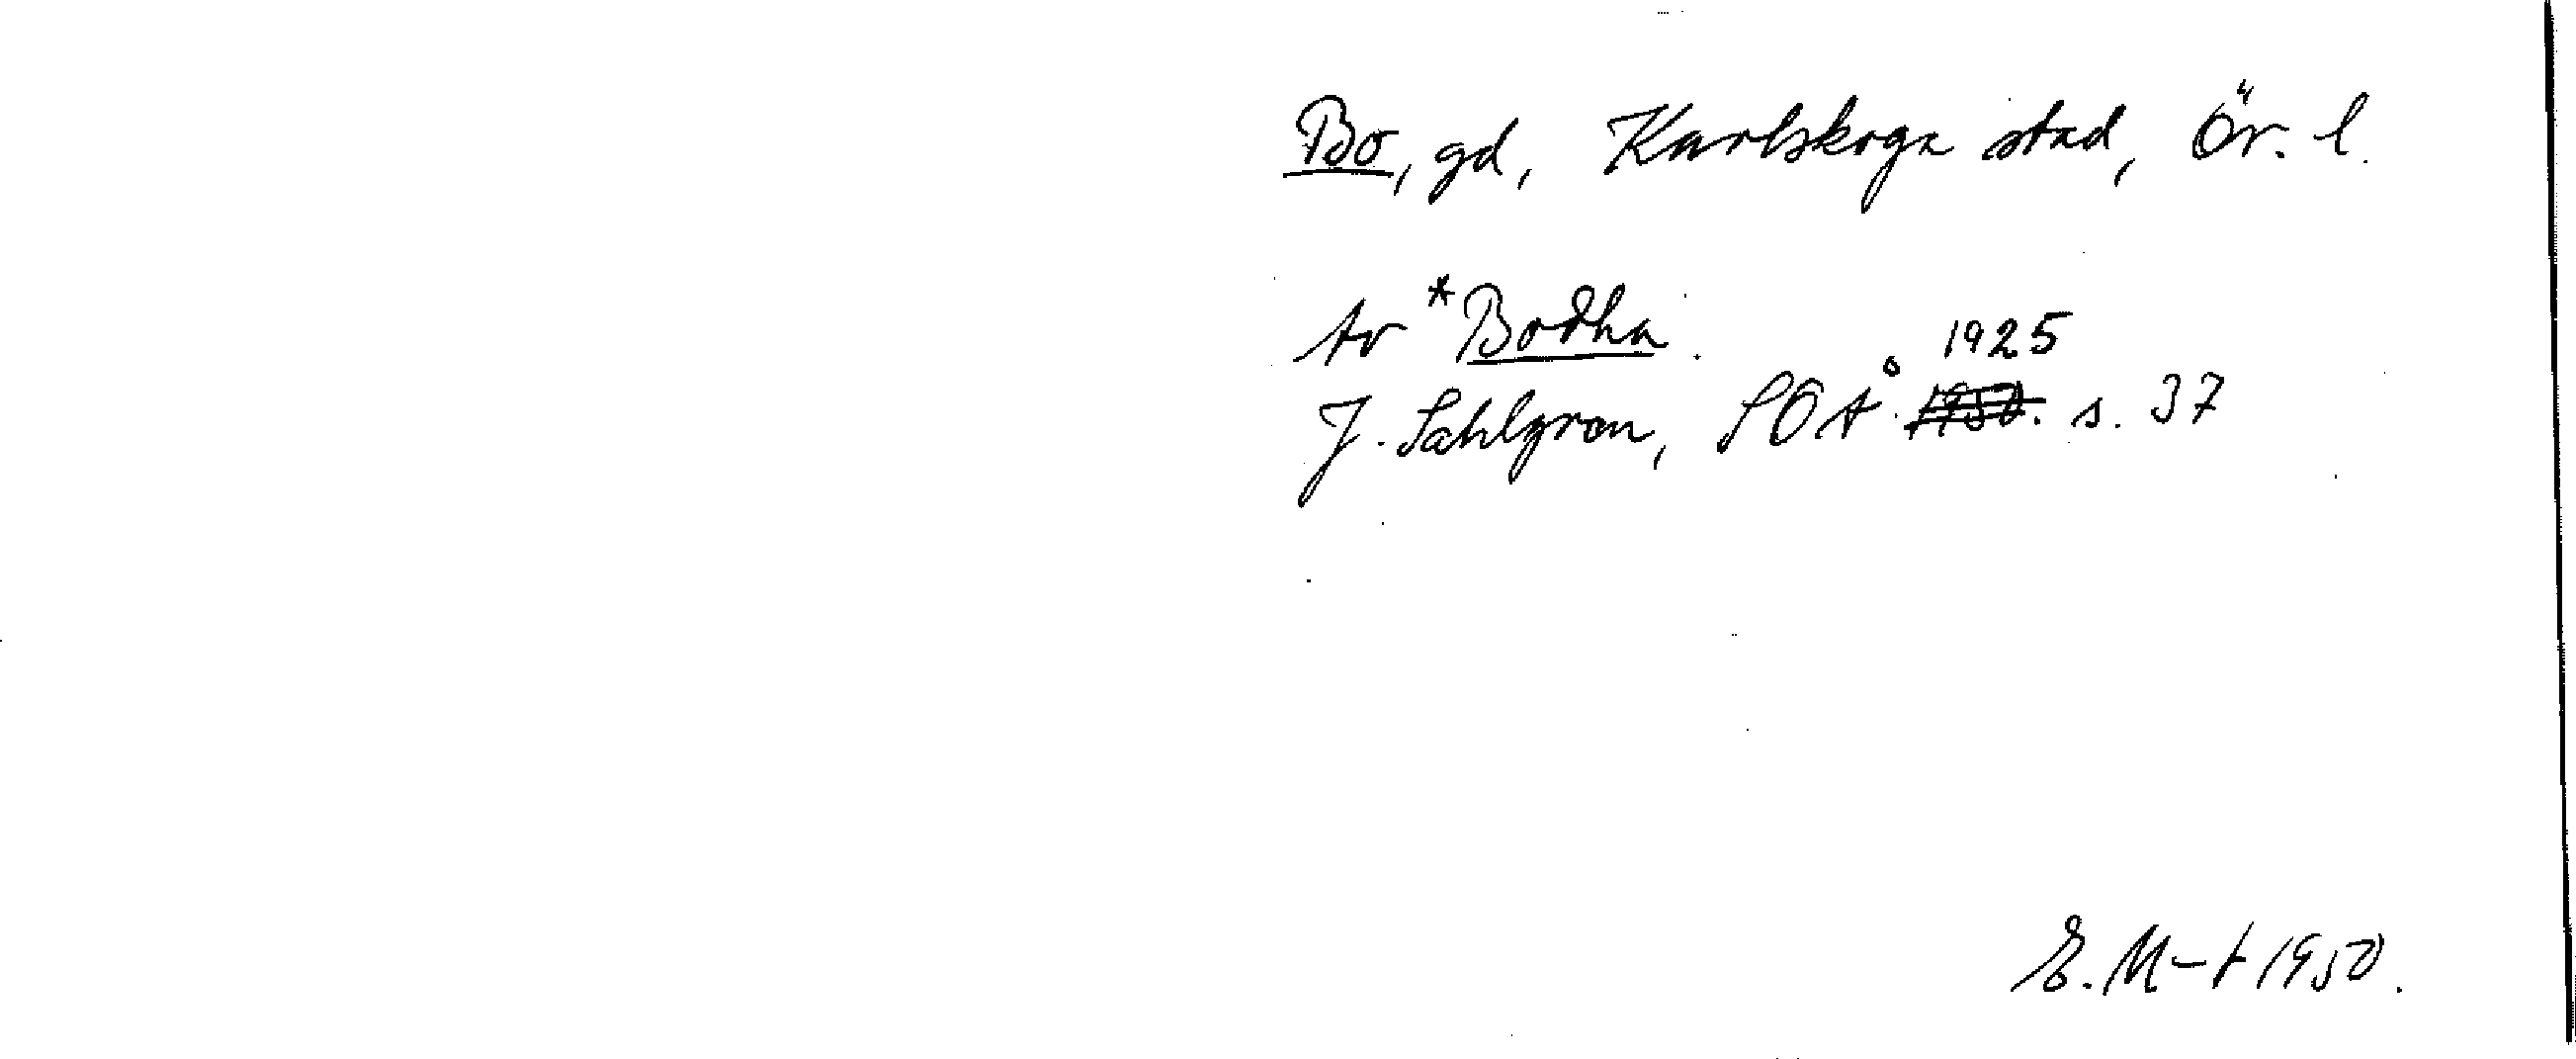 Bo, gd, Karlskoga stad, Ör. l.
Av *Bodha.
1925
J. Sahlgren, SOÅ 1950. s. 37
E. M-t 1950.